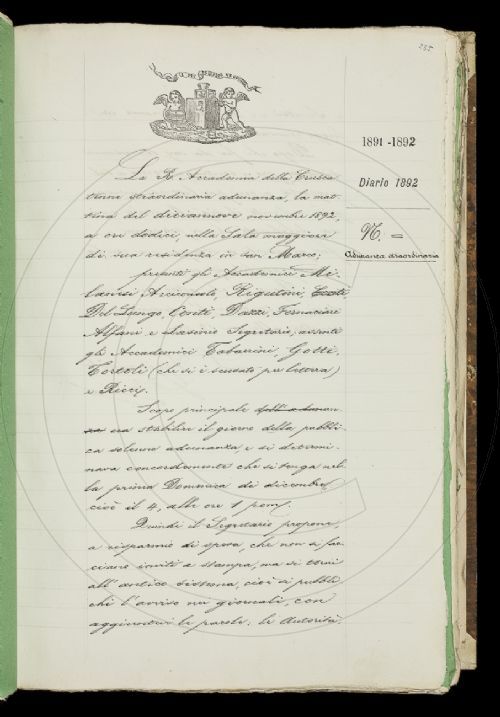 265
1891-1892
Diario 1892
N. =
Adunanza straordinaria
La R. Accademia della Crusca
tenne straordinaria adunanza, la mat-
tina del diciannove novembre 1892,
a ore dodici, nella Sala maggiore
di sua residenza in San Marco;
presenti gli Accademici Mi-
lanesi Arciconsolo, Rigutini, Conti,
Del Lungo, Conti, Dazzi, Fornaciari
Alfani e Segretario, assenti
gli Accademici Tabarrini, Gotti,
Tortoli (che si è scusato per lettera)
e Ricci.
Scopo principale dell'adunan-
za era stabilire il giorno della pubbli-
ca solenne adunanza e si determi-
nava concordemente che si tenga nel-
la prima Domenica di dicembre,
cioè il 4, alle ore 1 pom.
Quindi il Segretario propone,
a risparmio di spesa, che non si fac-
ciano inviti a stampa, ma si torni
all'antico sistema, cioè si pubbli-
chi l'avviso nei giornali, con
aggiuntovi le parole: le Autorità,